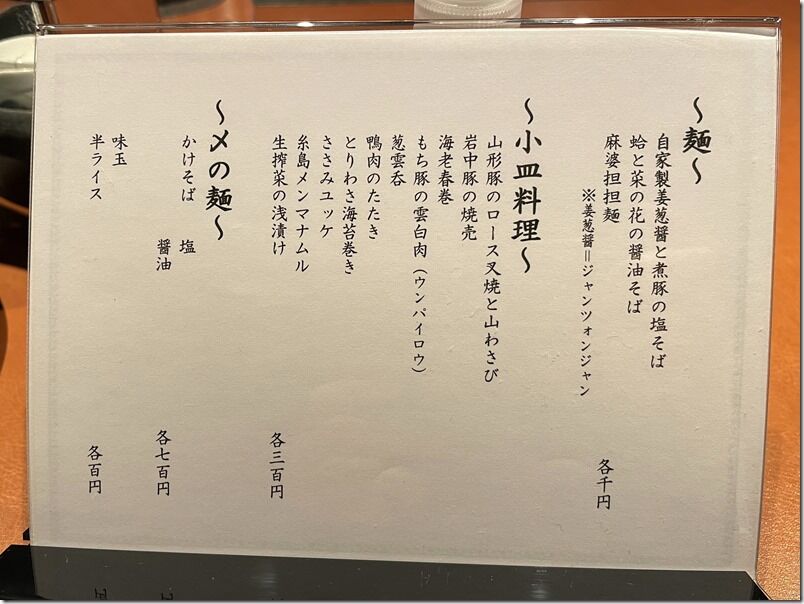 〜麺〜
自家製姜葱醤と煮豚の塩そば
蛤と菜の花の醤油そば
麻婆担担麺
※姜葱醤＝ジャンツォンジャン
各千円
〜小皿料理〜
山形豚のロース叉焼と山わさび
岩中豚の焼売
海老春巻
もち豚の雲白肉（ウンパイロウ）
葱雲呑
鴨肉のたたき
とりわさ海苔巻き
ささみユッケ
糸島メンマナムル
生搾菜の浅漬け
各三百円
〜〆の麺〜
かけそば 塩
醤油
各七百円
味玉
半ライス
各百円